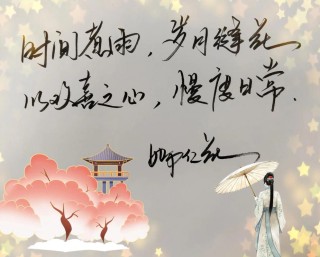 时间煮雨，岁月缝花
以欢喜之心，慢度日常.